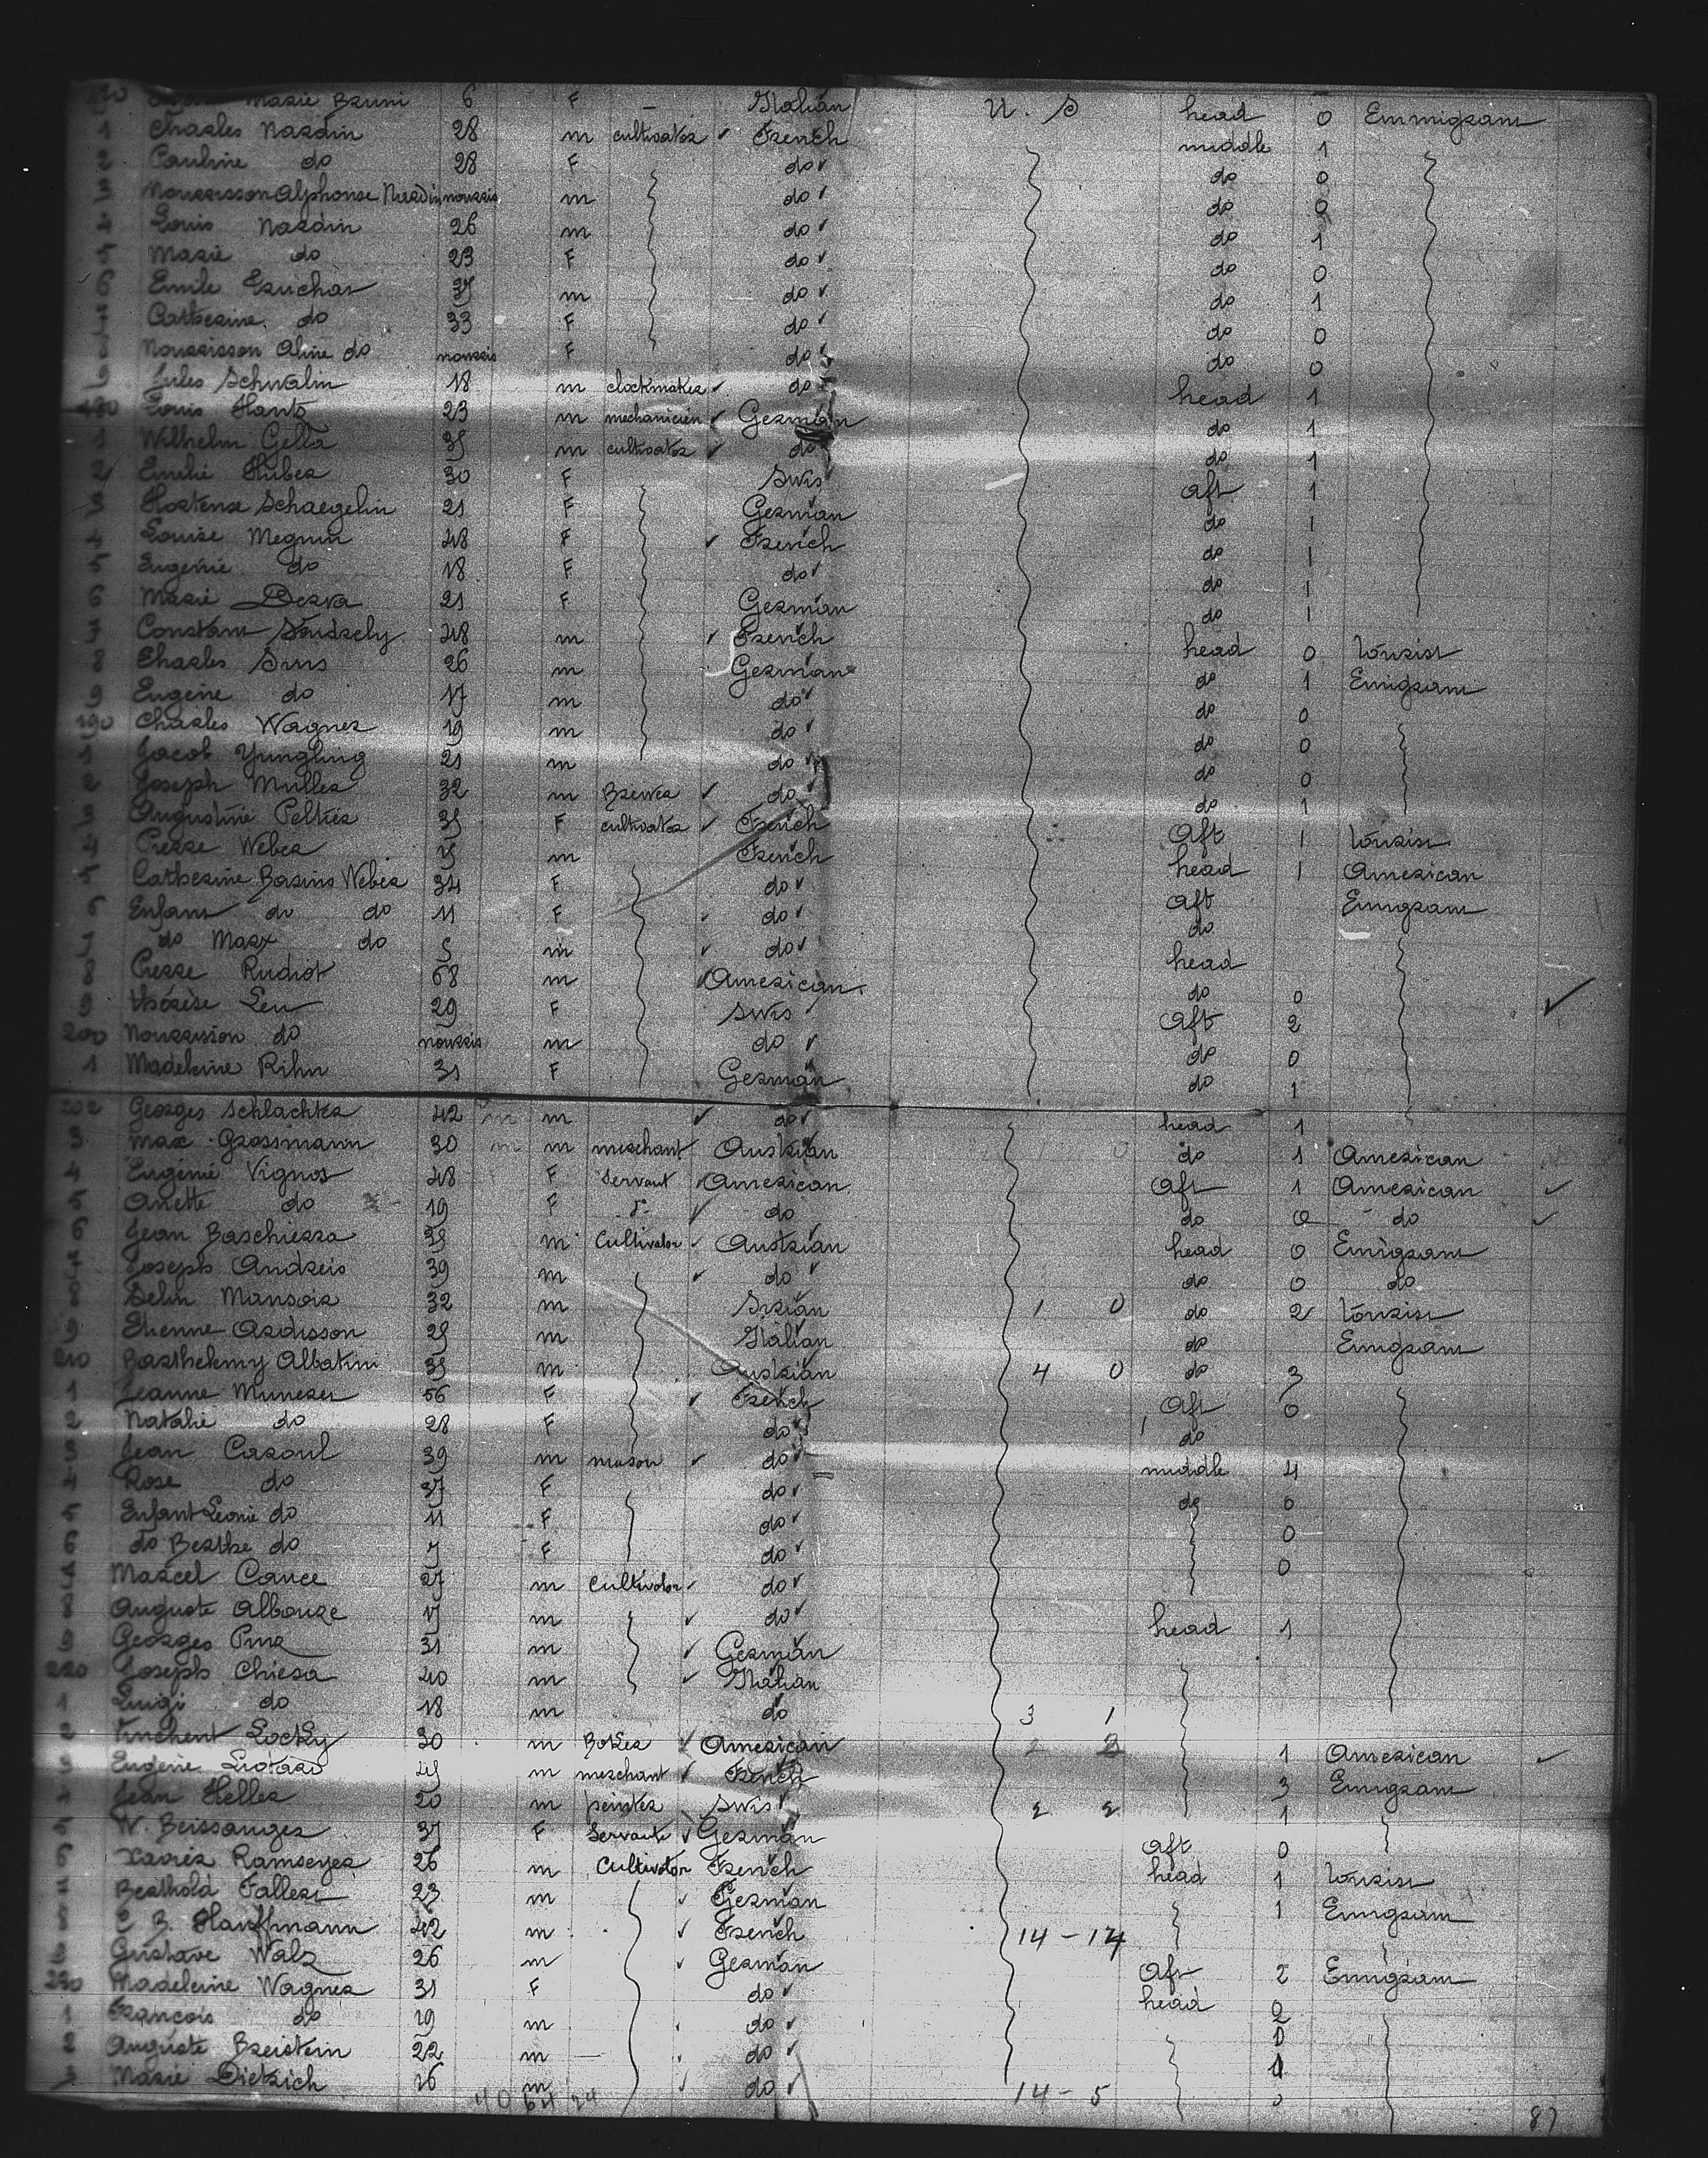 Marie Bruni 6 F — Italian U. S head 0 Emmigrant
1 Charles Nardin 28 m cultivator French middle 1
2 Pauline do 28 F do do 0
3 Nourrisson Alphonse Nardin nourris m do do 0
4 Louis Nardin 26 m do do 1
5 Marie do 23 F do do 0
6 Emile 37 m do do 1
7 Catherine do 33 F do do 0
8 Nourrisson Aline do nourris F do do 0
9 Jules Schwalm 18 m clockmaker do head 1
180 Louis Hantz 23 m mechanicien German do 1
1 Wilhelm Gella 35 m cultivator do do 1
2 Emilie Huber 30 F Swis aft 1
3 Hortense Schaegelin 21 F German do 1
4 Louise Megnin 48 F French do 1
5 Eugenie do 18 F do do 1
6 Marie Derva 21 F German do 1
7 Constant 48 m French head 0 Tourist
8 Charles 26 m German do 1 Emigrant
9 Eugene do 17 m do do 0
190 Charles Wagner 19 m do do 0
1 Jacob Yungling 21 m do do 0
2 Joseph Muller 32 m Brewer do do 1
3 Augustine Peltier 35 F cultivator French Aft 1 Tourist
4 Pierre Weber m French head 1 American
5 Catherine Weber 34 F do aft Emigrant
6 Enfant do do 11 F do do
7 do Marx do 5 m do head
8 Pierre Rudiot 68 m American do 0
9 Thérèse Leu 29 F Swis Aft 2
200 Nourrisson do nourris m do do 0
1 Madeleine Rihn 31 F German do 1
202 Georges Schlachter 42 m do head 1
3 Max Grossmann 30 m merchant Austrian do 1 American
4 Eugénie Vignos 48 F Servant American Aft 1 American
5 Anette do 19 F do do 0 do
6 Jean Baschierra m Cultivator Austrian head 0 Emigrant
7 Joseph Andreis 39 m do do 0 do
8 Selim Mansoir 32 m Sirian 1 0 do 2 Tourist
9 Etienne Ardisson 25 m Italian do Emigrant
210 Barthelemy Albatini 35 m Austrian 4 0 do 3
1 Jeanne 56 F French Aft 0
2 Natalie do 28 F do do
3 Jean Cazoul 39 m mason do middle 4
4 Rose do 37 F do do 0
5 Enfant Léonie do 11 F do 0
6 do Berthe do 7 F do 0
7 Marcel Cance 27 m Cultivator do
8 Auguste Albouze 17 m do head 1
9 Georges 31 m German
220 Joseph Chiesa 40 m Italian
1 Luigi do 18 m do 3 1
2 Vincent Locky 30 m Baker American 1 American
3 Eugène 45 m merchant French 3 Emigrant
4 Jean Heller 20 m peinter Swis 2 2 1
5 W. Beissanger 37 F Servante German aft 0
6 Xavier Ramseyer 26 m Cultivator French head 1 Tourist
7 Berthold Faller 23 m German 1 Emigrant
8 C B. Hauffmann 42 m French 14 - 14
9 Gustave Walz 26 m German Aft 2 Emigrant
230 Madeleine Wagner 31 F do head 2
1 François do 19 m do 0
2 Auguste Breistein 22 m do 1
3 Marie Dietrich 26 m do 14 - 5
87